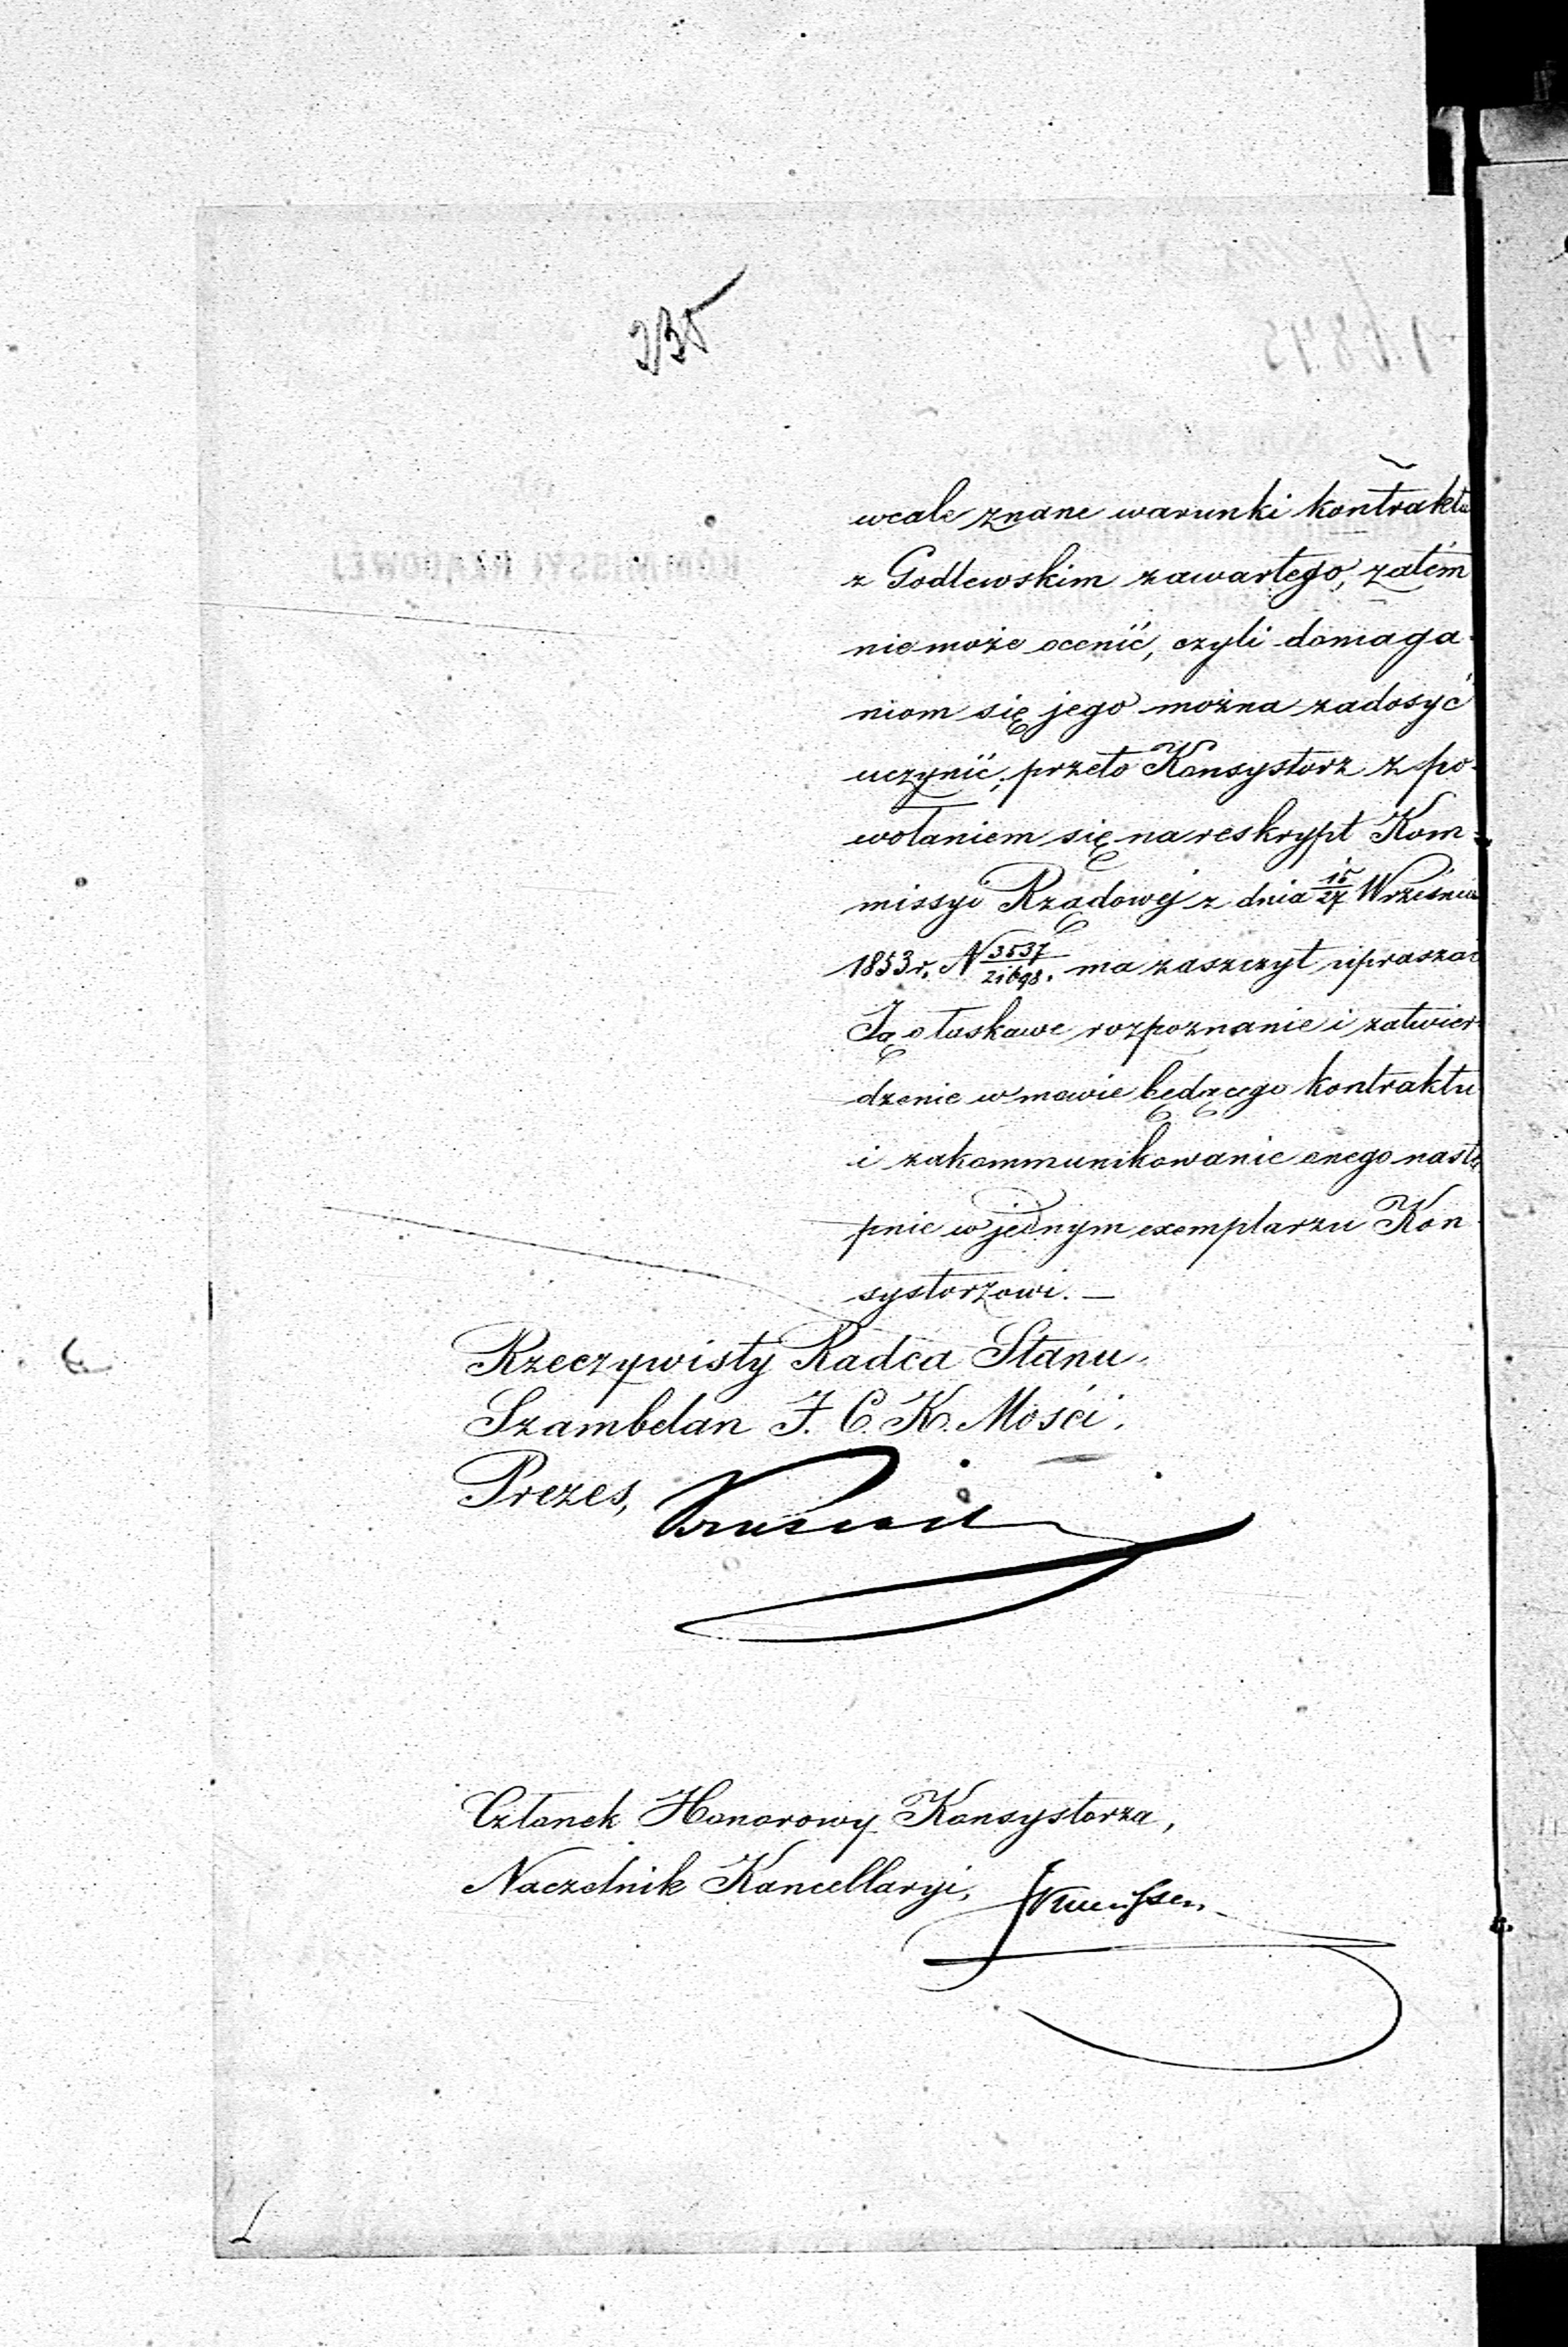 235
wcale znane warunki kontraktu
z Godlewskim zawartego, zatém
nie może ocenić, czyli domaga-
niom się jego można zadosyć
uczynić, przeto Konsystorz z po-
wołaniem się na reskrypt Kom-
missyi Rządowej z dnia 15/27 Września
1853 r. N 3537/21698. ma zaszczyt upraszać
Ją o łaskawe rozpoznanie i zatwier-
dzenie w mowie będącego kontraktu
i zakommunikowanie onego nastę-
pnie w jednym exemplarzu Kon-
systorzowi. —
Rzeczywisty Radca Stanu,
Szambelan J. C. K. Mości,
Prezes,
Członek Honorowy Konsystorza,
Naczelnik Kancellaryi,